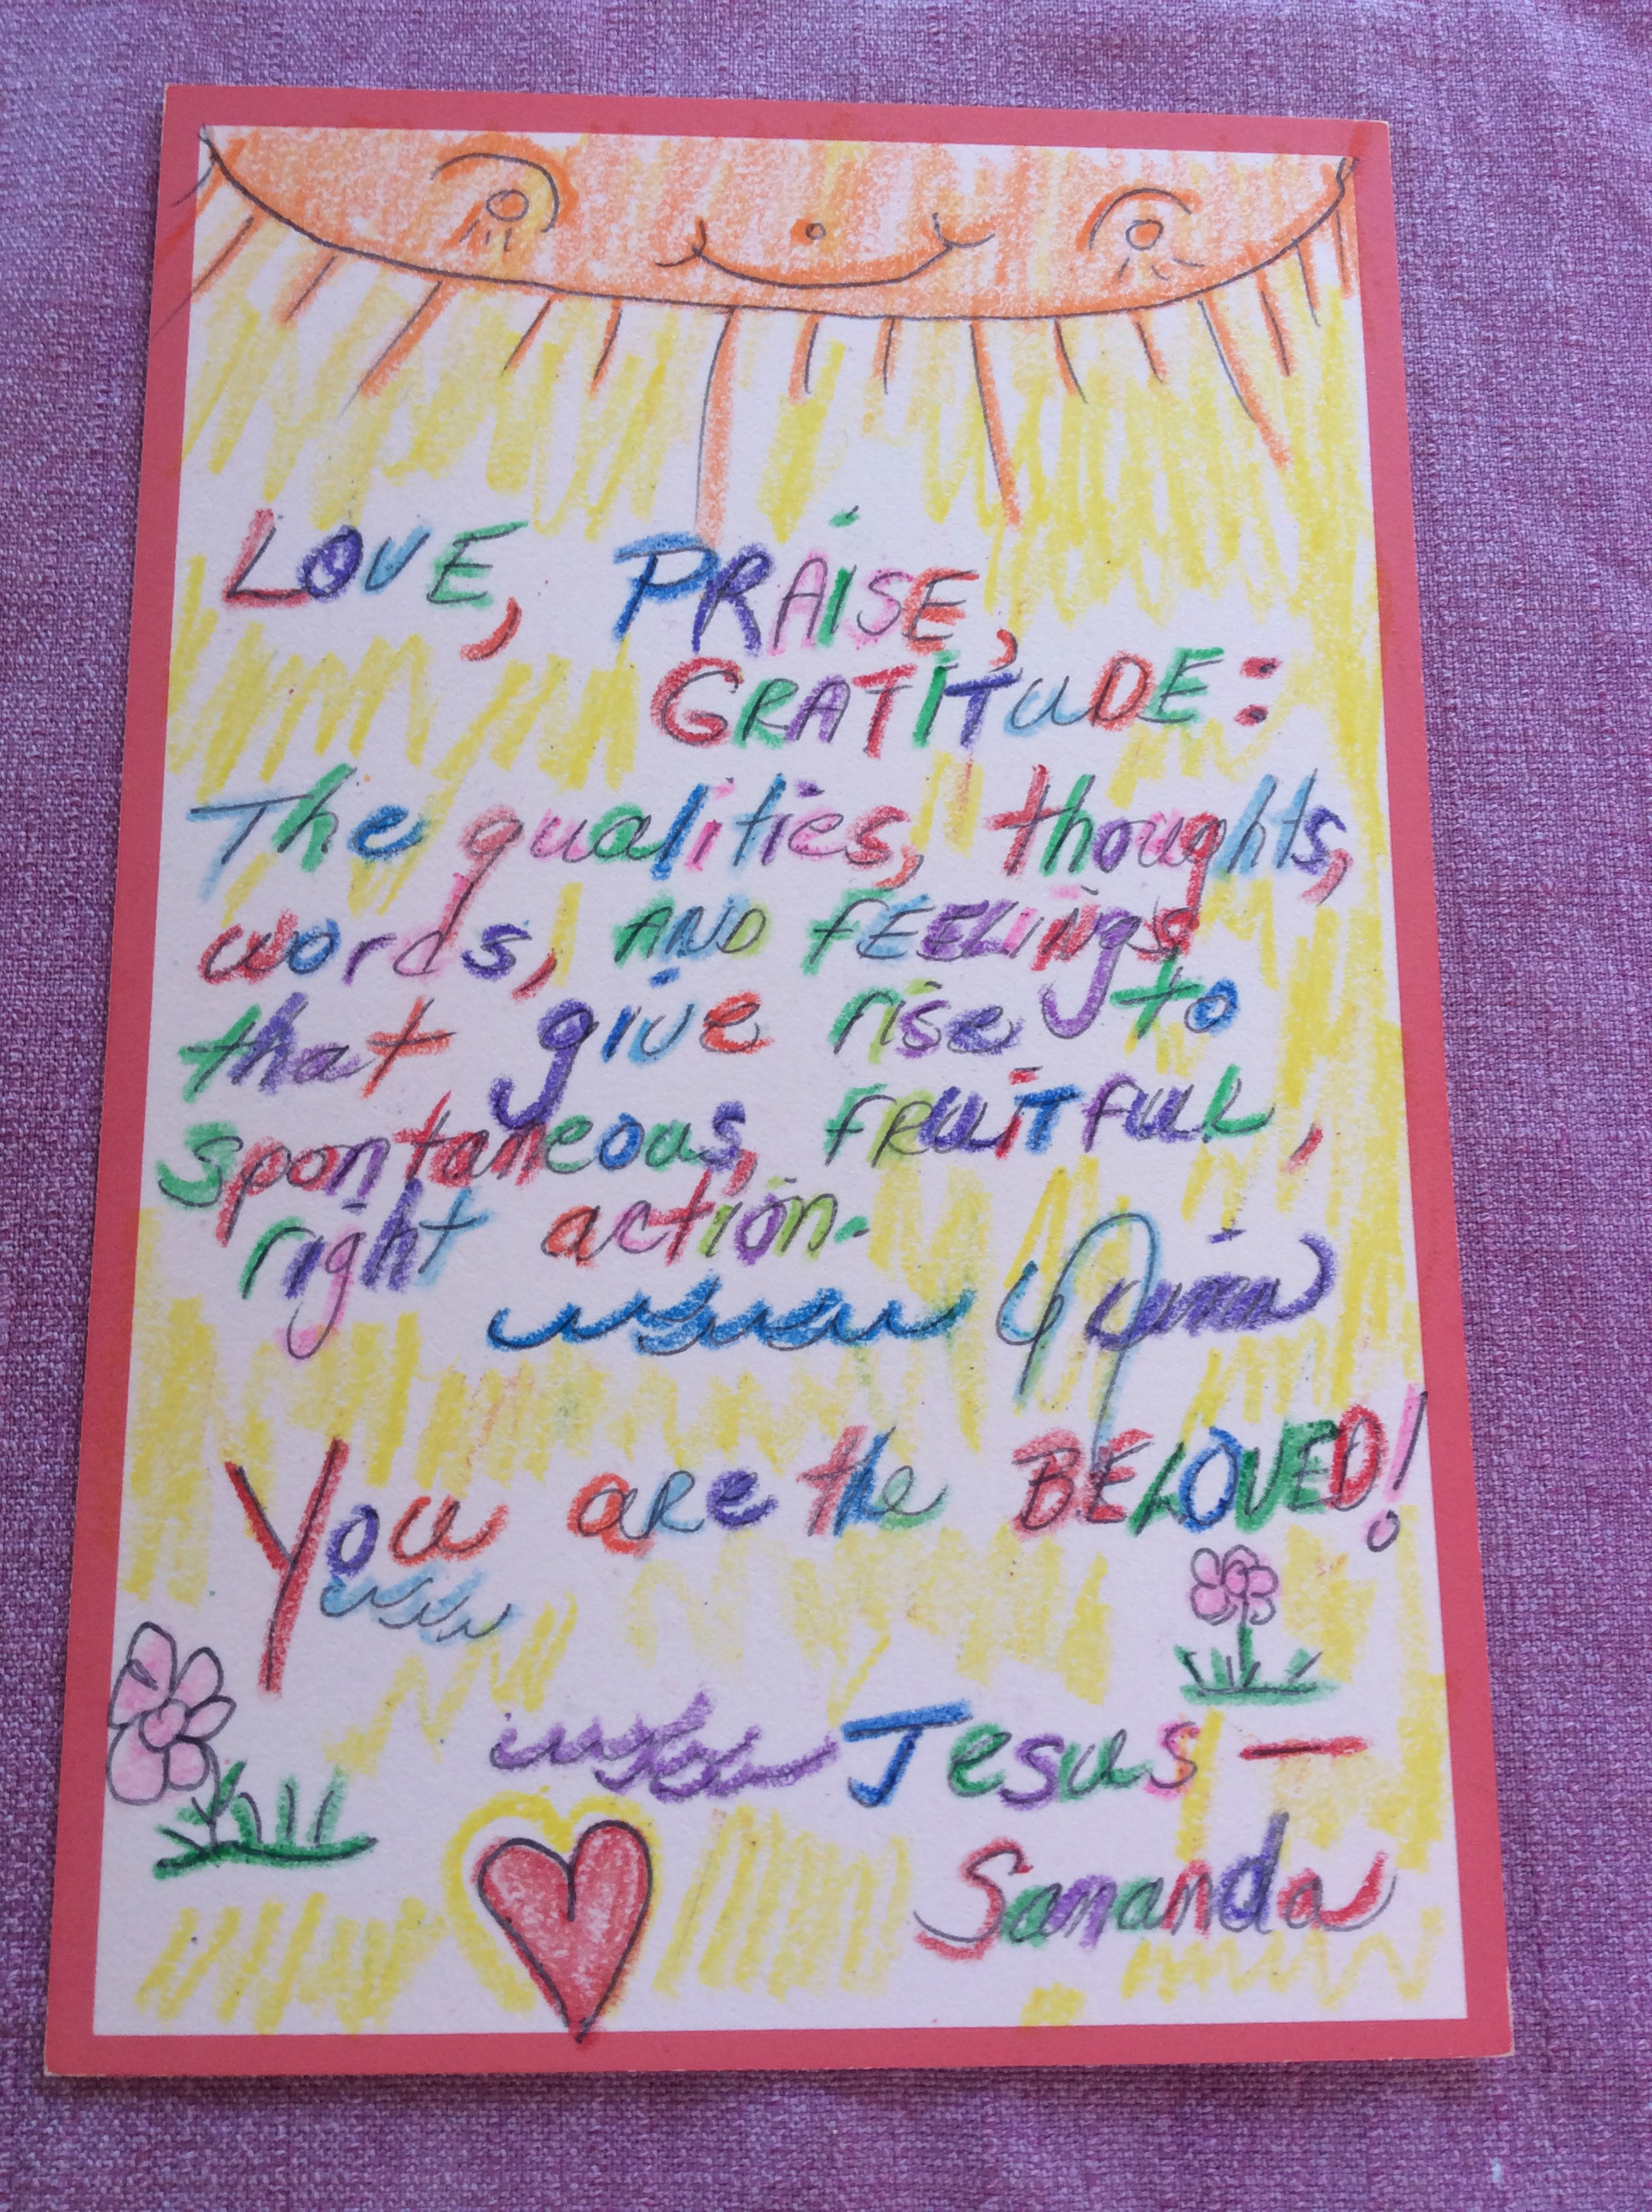 LOVE, PRAiSE,
GRATITUDE:
The qualities, thoughts,
words, AND FEELINgs
that give rise to
spontaneous, FRUITFUL,
right action.
You are the BELOVED!
Jesus —
Sananda